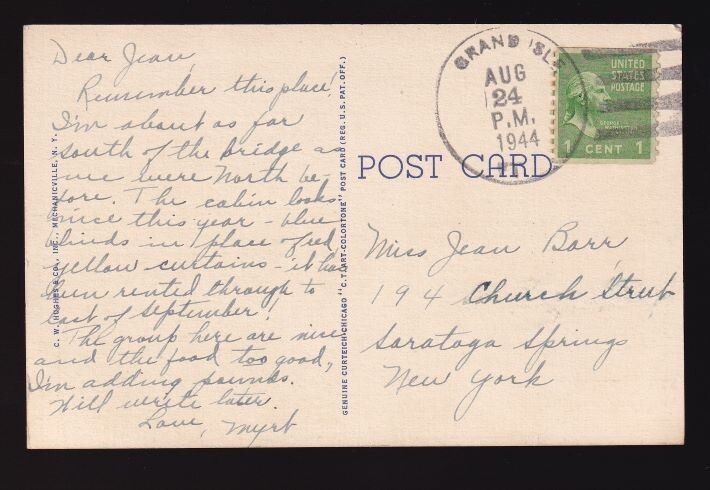 Dear Jean,
Remember this place!
I'm about as far
south of the bridge as
we were North be-
fore. The cabin looks
nice this year - blue
blinds in place of red
yellow curtains - it has
been rented through to
last of September!
The group here are nice
and the food too good,
I'm adding pounds.
Will write later.
Love, Myrt
C. W. HUGHES & CO., INC., MECHANICVILLE, N. Y.
GENUINE CURTEICH-CHICAGO "C.T. ART-COLORTONE" POST CARD (REG. U.S. PAT. OFF.)
POST CARD
GRAND ISLE
AUG
24
P.M.
1944
VT.
UNITED
STATES
POSTAGE
GEORGE WASHINGTON
1 CENT 1
Miss Jean Barr,
194 Church Street
Saratoga Springs
New York